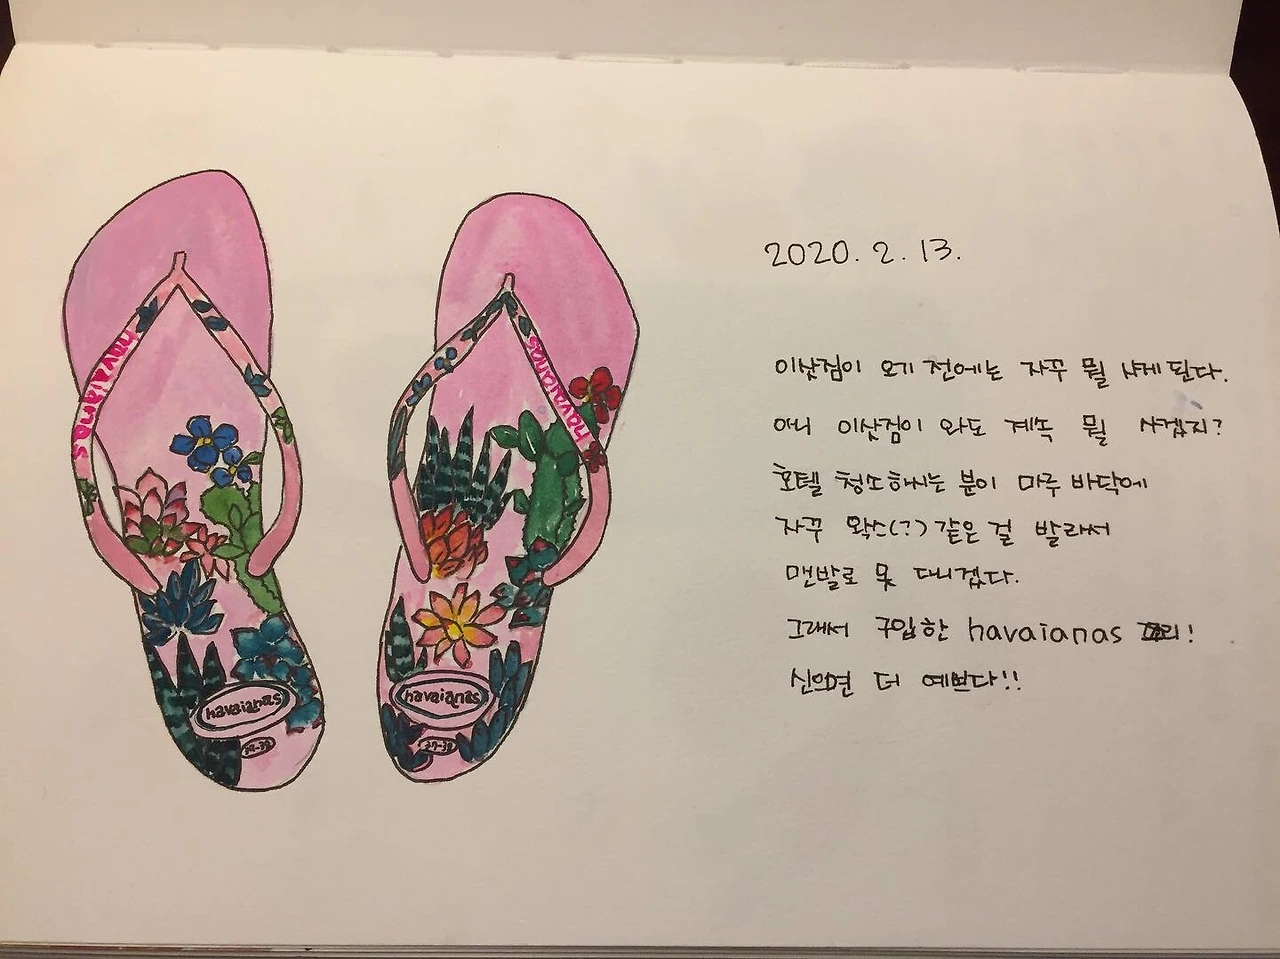 havaianas
havaianas
havaianas
havaianas
37-38
2020. 2. 13.
이삿짐이 오기 전에는 자꾸 뭘 사게 된다.
아니 이삿짐이 와도 계속 뭘 사겠지?
호텔 청소하시는 분이 마루 바닥에
자꾸 왁스(?) 같은 걸 발라서
맨발로 못 다니겠다.
그래서 구입한 havaianas 쪼리!
신으면 더 예쁘다!!